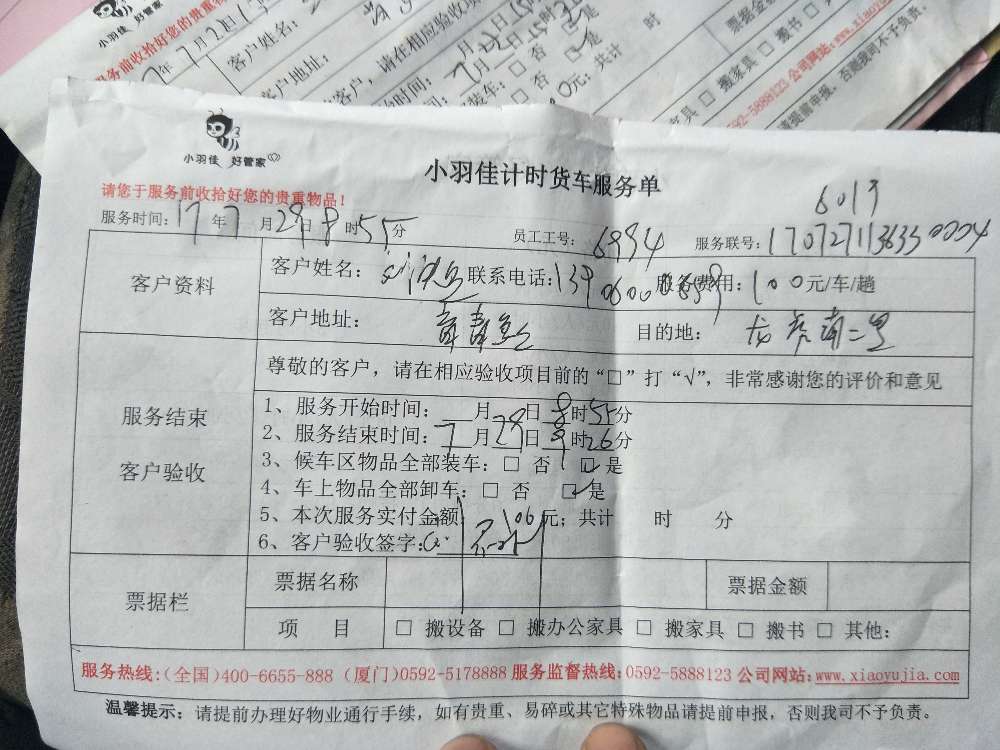 小羽佳 好管家
小羽佳计时货车服务单
6019
请您于服务前收拾好您的贵重物品！
服务时间：17年7月28日8时55分 员工工号：6994 服务联号：1707271136330004
客户资料 客户姓名： 联系电话：139 服务费用：100元/车/趟
客户地址： 目的地：龙虎南二里
尊敬的客户，请在相应验收项目前的“□”打“√”，非常感谢您的评价和意见
服务结束 客户验收
1、服务开始时间：__月28日8时55分
2、服务结束时间：7月28日9时26分
3、候车区物品全部装车：□ 否 ☑是
4、车上物品全部卸车：□ 否 ☑是
5、本次服务实付金额：106元；共计 时 分
6、客户验收签字：
票据栏 票据名称 票据金额
项 目 □ 搬设备 □ 搬办公家具 □ 搬家具 □ 搬书 □ 其他：
服务热线：（全国）400-6655-888（厦门）0592-5178888 服务监督热线：0592-5888123 公司网站：www.xiaoyujia.com
温馨提示：请提前办理好物业通行手续，如有贵重、易碎或其它特殊物品请提前申报，否则我司不予负责。